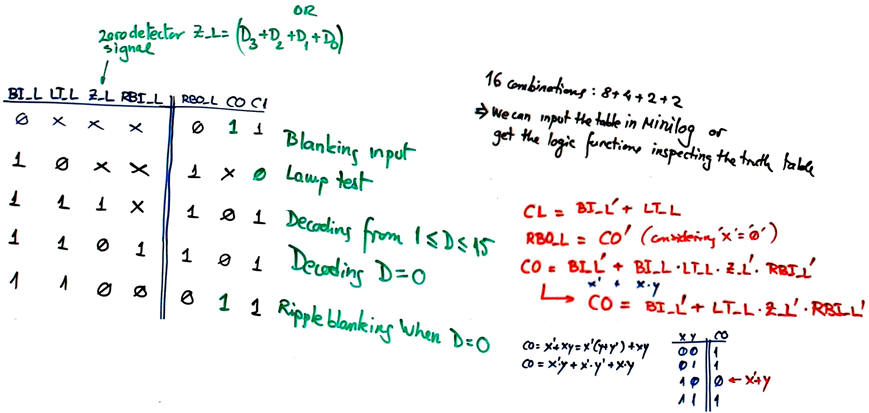 OR
zero detector Z_L = (D3+D2+D1+D0)
signal
BI_L LT_L Z_L RBI_L RBO_L CO C1
0 x x x 0 1 1 Blanking input
1 0 x x 1 x 0 Lamp test
1 1 1 x 1 0 1 Decoding from 1 ≤ D ≤ 15
1 1 0 1 1 0 1 Decoding D=0
1 1 0 0 0 1 1 Ripple blanking when D=0
16 combinations: 8+4+2+2
⇒ We can input the table in Minilog or
get the logic functions inspecting the truth table
CL = BI_L' + LT_L
RBO_L = CO' (considering 'x'='0')
CO = BI_L' + BI_L · LT_L · Z_L' · RBI_L'
x' + x·y
CO = BI_L' + LT_L · Z_L' · RBI_L'
CO = x'+xy = x'(y+y') + xy
CO = x'·y + x'·y' + x·y
X Y CO
0 0 1
0 1 1
1 0 0 ← x'+y
1 1 1